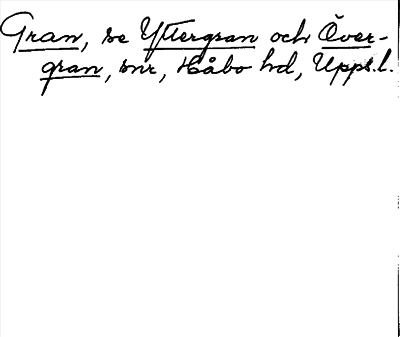 Gran, se Yttergran och Över-
gran, snr, Håbo hd, Upps.l.